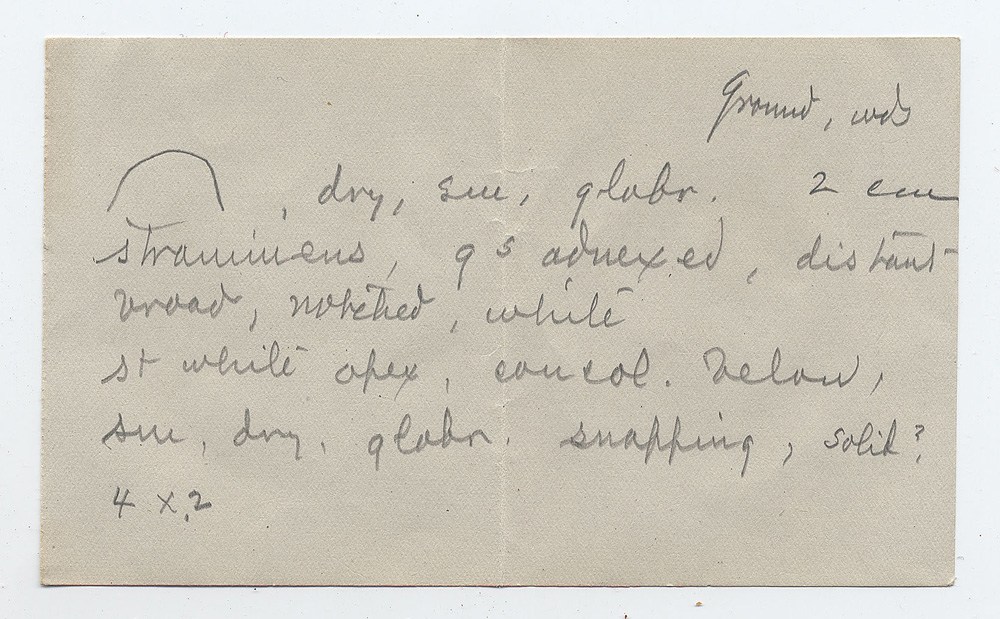 Ground, wds
, dry, sm, glabr. 2 cm
stramineus, gs adnexed, distant
broad, notched, white
st white apex, concol. below,
sm, dry, glabr. snapping, solid?
4 x .2